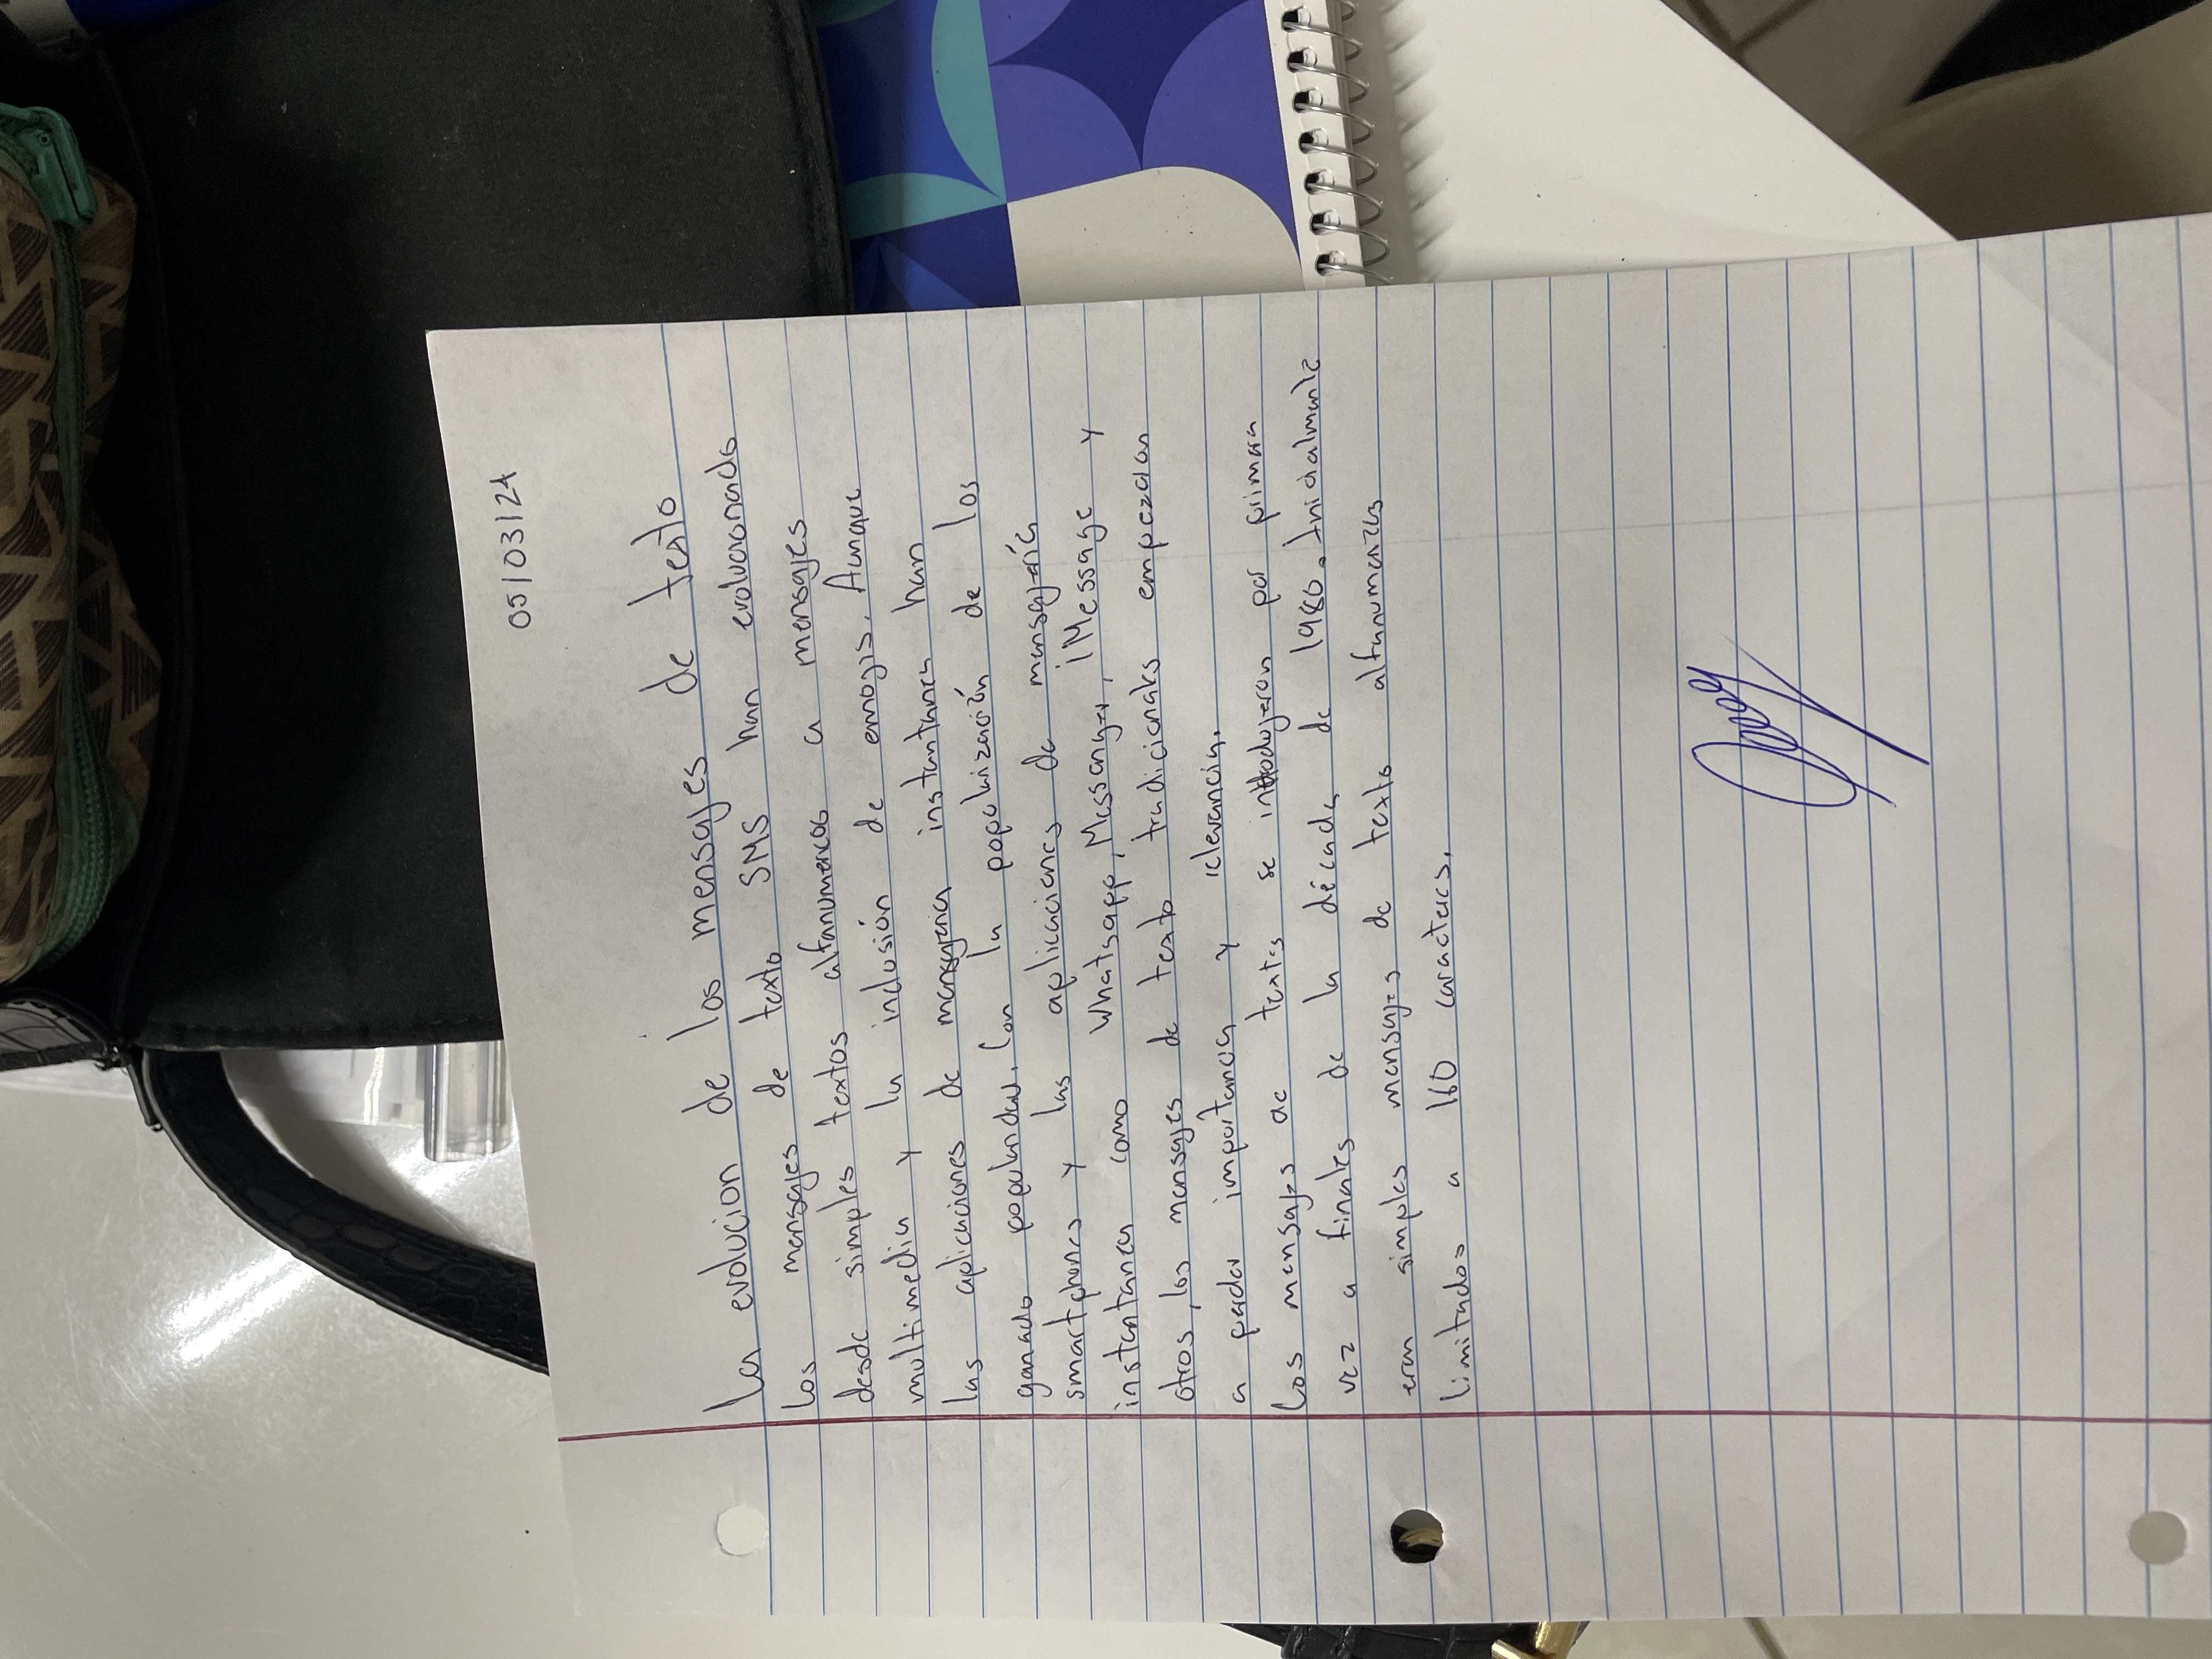 05/03/24
La evolucion de los mensajes de texto
Los mensajes de texto SMS han evolucionado
desde simples textos alfanumericos a mensajes
multimedia y la inclusión de emojis. Aunque
las aplicaciones de mensajeria instantanea han
ganado popularidad. Con la popularización de los
smartphones y las aplicaciones de mensajería
instantanea como Whatsapp, Messanger, iMessage y
otros, los mensajes de texto tradicionales empezaron
a perder importancia y relevancia.
Los mensajes de textos se introdujeron por primera
vez a finales de la década de 1980. Inicialmente
eran simples mensajes de texto alfanumericos
limitados a 160 caracteres.